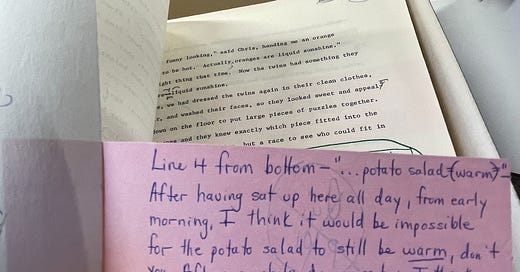 funny looking," said Chris, handing me an orange
to be hot. Actually, oranges are liquid sunshine."
ght thing that time. Now the twins had something they
liquid sunshine.
we had dressed the twins again in their clean clothes,
r, and washed their faces, so they looked sweet and appeal
own on the floor to put large pieces of puzzles together.
and they knew exactly which piece fitted into the
but a race to see who could fit in
Line 4 from bottom — "...potato salad (warm)"—
After having sat up here all day, from early
morning, I think it would be impossible
for the potato salad to still be warm, don't
you. After